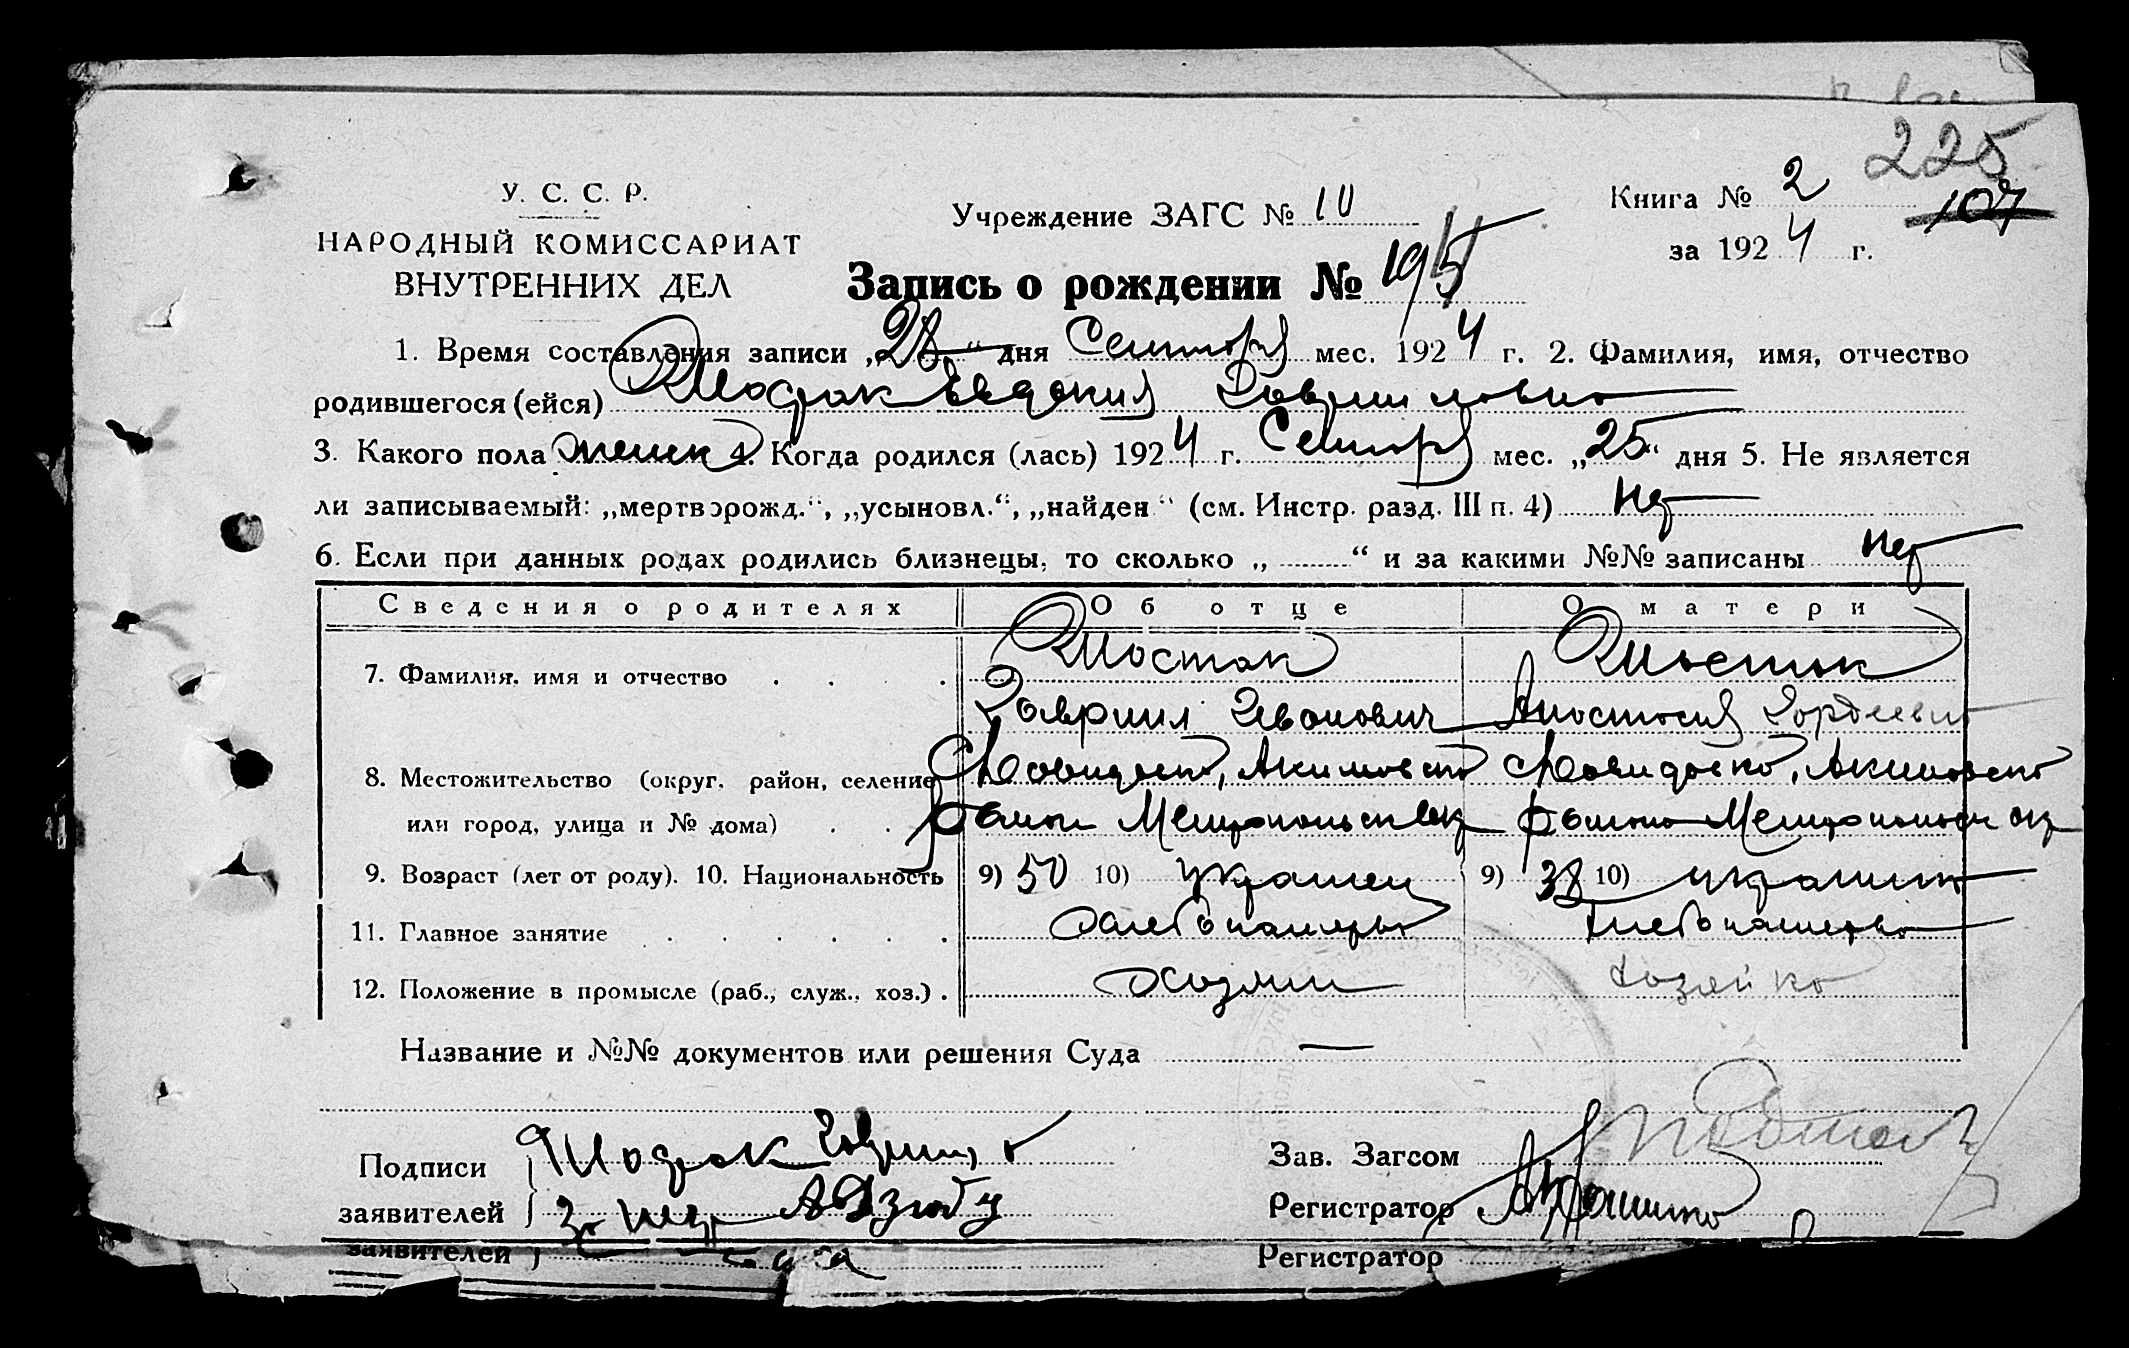 225
У. С. С. Р.
НАРОДНЫЙ КОМИССАРИАТ
ВНУТРЕННИХ ДЕЛ
Учреждение ЗАГС № 10
Книга № 2
107
за 1924 г.
Запись о рождении № 195
1. Время составления записи „28“ дня Сентября мес. 1924 г. 2. Фамилия, имя, отчество
родившегося (ейся) Шостак Евдокия Гавриловна
3. Какого пола женск 4. Когда родился (лась) 1924 г. Сентября мес. „25“ дня 5. Не является
ли записываемый: „мертворожд.“, „усыновл.“, „найден“ (см. Инстр. разд. III п. 4) нет
6. Если при данных родах родились близнецы, то сколько „ “ и за какими №№ записаны нет
Сведения о родителях Об отце О матери
7. Фамилия, имя и отчество Шостак Шостак
Гавриил Иванович Анастасия Гордеевна
8. Местожительство (округ, район, селение Давидовка, Акимовско Давидовка, Акимовско
или город, улица и № дома) району Мелитопольск окр району Мелитопольск окр
9. Возраст (лет от роду). 10. Национальность 9) 50 10) украинец 9) 38 10) украинка
11. Главное занятие Хлебопашество Хлебопашество
12. Положение в промысле (раб., служ., хоз.) Хозяин хозяйка
Название и №№ документов или решения Суда —
Подписи Шостак Гаврил
заявителей
Зав. Загсом
Регистратор
заявителей
Регистратор